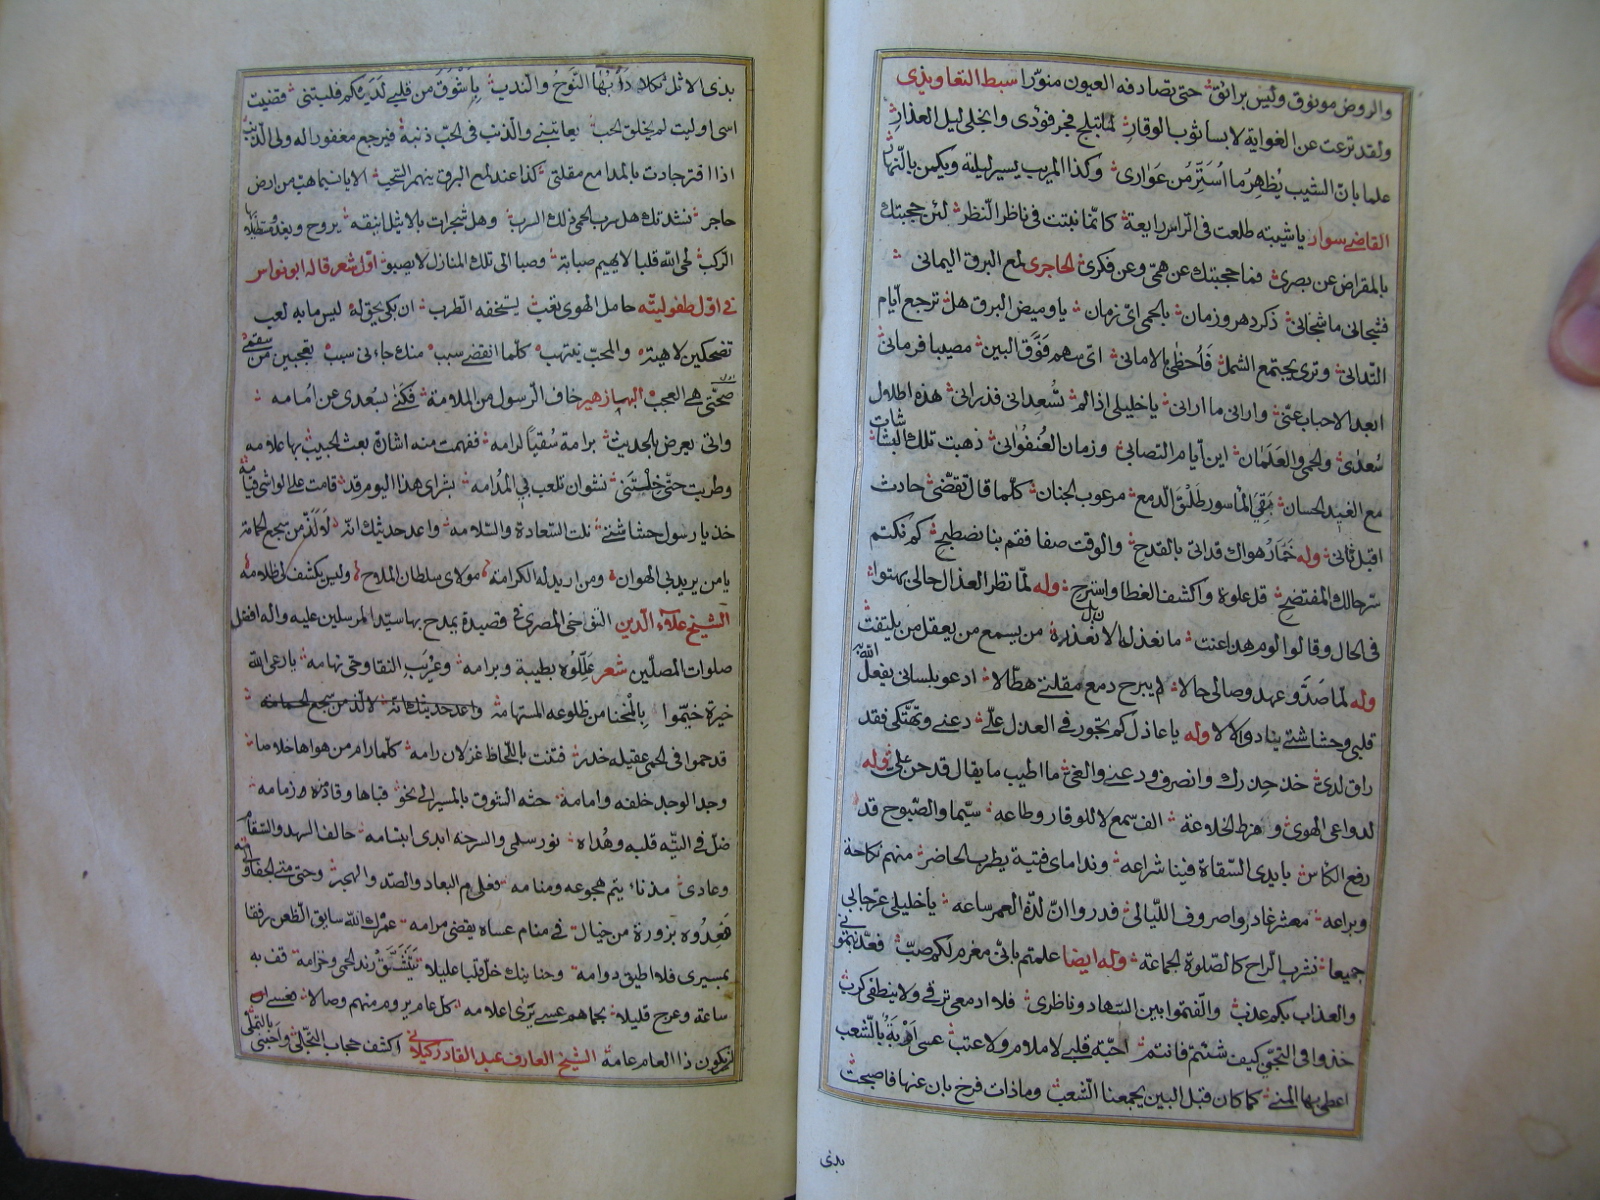 والروض مونوق وليس برائق حتى تصادفه العيون منوّرا سبط التعاويذى
ولقد نزعت عن الغواية لابسا ثوب الوقار لما تبلج فجر فودى وانجلى ليل العذار
علما بان الشيب يظهر ما استر من عوارى وكذا المريب يسير ليلة ويكمن بالنهار
القاضى سوار يا شيبته طلعت فى الراس رايعة كانما نبتت فى ناظر النظر لئن حجبتك
بالمقراض عن بصرى فما حجبتك عن همّى وعن فكرى الحاجرى لمع البرق اليمانى
فشجانى ما شجانى ذكر دهر وزمان بالحمى اىّ زمان يا وميض البرق هل ترجع ايام
التدانى وترى يجتمع الشمل فاحظى بالامانى اى سهم فوّق البين مصيبا فرمانى
ابعد الاحباب عنى وارانى ما ارانى يا خليلى اذا لم تسعدانى فذرانى هذه اطلال
سُعدى والحمى والعلمان اين أيام التصابى وزمان العنفوانى ذهبت تلك البشاشات
مع الغيد الحسان بقى الماسور طلق الدمع مرعوب الجنان كلما قال تقضّى حادث
اقبل ثانى وله خمار هواك قد اتى بالقدح والوقت صفا فقم بنا نصطبح كم نكتم
سر حالك المفتضح قل علوة واكشف الغطا واسترح وله لما نظر العذال حالى بهتوا
فى الحال وقالوا لوم هذا عنت ما نعذله الا نعذره من يسمع من يعقل من يلتفت
وله لما صدّ وعهد وصالى حالا لم يبرح دمع مقلتى هطّالا ادعو بلسانى يفعل الله به
قلبى وحشاشتى ينادو الا لا وله يا عاذل كم تجور فى العذل علىّ دعنى وتهتكى فقد
راق لدىّ خذ حذرك وانصرف ودعنى والغىّ ما اطيب ما يقال قد جن على وله
لدواعى الهوى و فرط الخلاعة الف سمع لا للوقار وطاعه سيّما والصّبوح قد
رفع الكاس بايدى السقاة فينا شراعه ونداماى فتية يطرب الحاضر منهم فكاهة
وبراعه معشر غادروا صروف الليالى فدروا انّ لذة العمر ساعه يا خليلى عرّجا بى
جميعا نشرب الراح كالصلوة الجماعة وله ايضا علمتم بانى مغرم لكم صبّ فعذبتمونى
والعذاب بكم عذب والفتموا بين السهاد وناظرى فلا ادمعى ترقى ولا ينطفى كرب
خذوا فى التجنى كيف شئتم فانتم احبّة قلبى لا ملام ولا عتب عسى اوبة بالشعب
اعطى بها المنى كما كان قبل البين يجمعنا الشعب وماذات فرخ بان عنها فاصبحت
بذى
بذى الاثل ثكلا دأبها النوح والندب باشوق من قلبى لديكم فليتنى قضيت
اسى او ليت لم يخلق الحب يعاتبنى والذنب فى الحب ذنبه فيرجع مغفورا له ولى الذنب
اذا افتر جادت بالمدامع مقلتى كذا عند لمع البرق ينهمر السحب الا يا نسيما هب من ارض
حاجر نشدتك هل سرب الحمى ذلك السرب وهل شجرات بالاثيل انيقه يروح ويغدو مستظلا بها
الركب لحى الله قلبا لا يهيم صبابة وصبا الى تلك المنازل لا يصبو اول شعر قاله ابونواس
فى اول طفوليته حامل الهوى تعب يستخفه الطرب ان بكى يحق له ليس ما به لعب
تضحكين لاهيته والمحب ينتحب كلما انقضى سبب منك جاءنى سبب تعجبين من سقمى
صحتى هى العجب البهازهير خاف الرسول من الملامة فكنى بسعدى عن امامه
واتى يعرض بالحديث برامة سقيا لرامه ففهمت منه اشارة بعث الحبيب بها علامه
وطربت حتى خلتنى نشوان تلعب بى المدامه بشراى هذا اليوم قد قامت على الواشى قيامه
خذ يا رسول حشاشتى نلت السعادة والسلامه واعد حديثك انه لألذ من سجع الحمامة
يا من يريد بى الهوان ومن اريد له الكرامة مولاى سلطان الملاح وليس يكشف لى ظلامه
الشيخ علاء الدين النواجى المصرى فى قصيدة يمدح بها سيد المرسلين عليه واله افضل
صلوات المصلين شعر عللوه بطيبة وبرامه وغريب النقا وحى تهامه يا رعى الله
خيرة خيّموا بالمنحنا من ظلوعه المستهامه واعد حديثك انه لالذ من سجع الحمامه
قد حموا فى الحمى عقيله خدر فتنت باللحاظ غزلان رامه كلما رام من هواها خلاصا
وجدا لوجد خلفه وامامه حثه الشوق بالمسير الى نحو قباها وقاده زمامه
ضل فى التيه قلبه وهداه نور سلمى والدجه ابدى ابتسامه حالف السهد والسقام
وعادى مذناء يتم هجوعه ومنامه فعلى م البعاد والصد والهجر وحتى متى الجفا والى مه
فعدوه بزورة من خيال فى منام عساه يقضى مرامه عمرك الله سابق الظعن رفقا
بمسيرى فلا اطيق دوامه وحنانيك خل قلبا عليلا يتنشق رند الحمى وخزامه قف به
ساعة وعرج قليلا بحماهم عسى يرى اعلامه كل عام يروم منهم وصالا فعسى ان
تكون ذا العام عامة الشيخ العارف عبد القادر كيلانى اكشف حجاب التجلى واحينى بالتملى